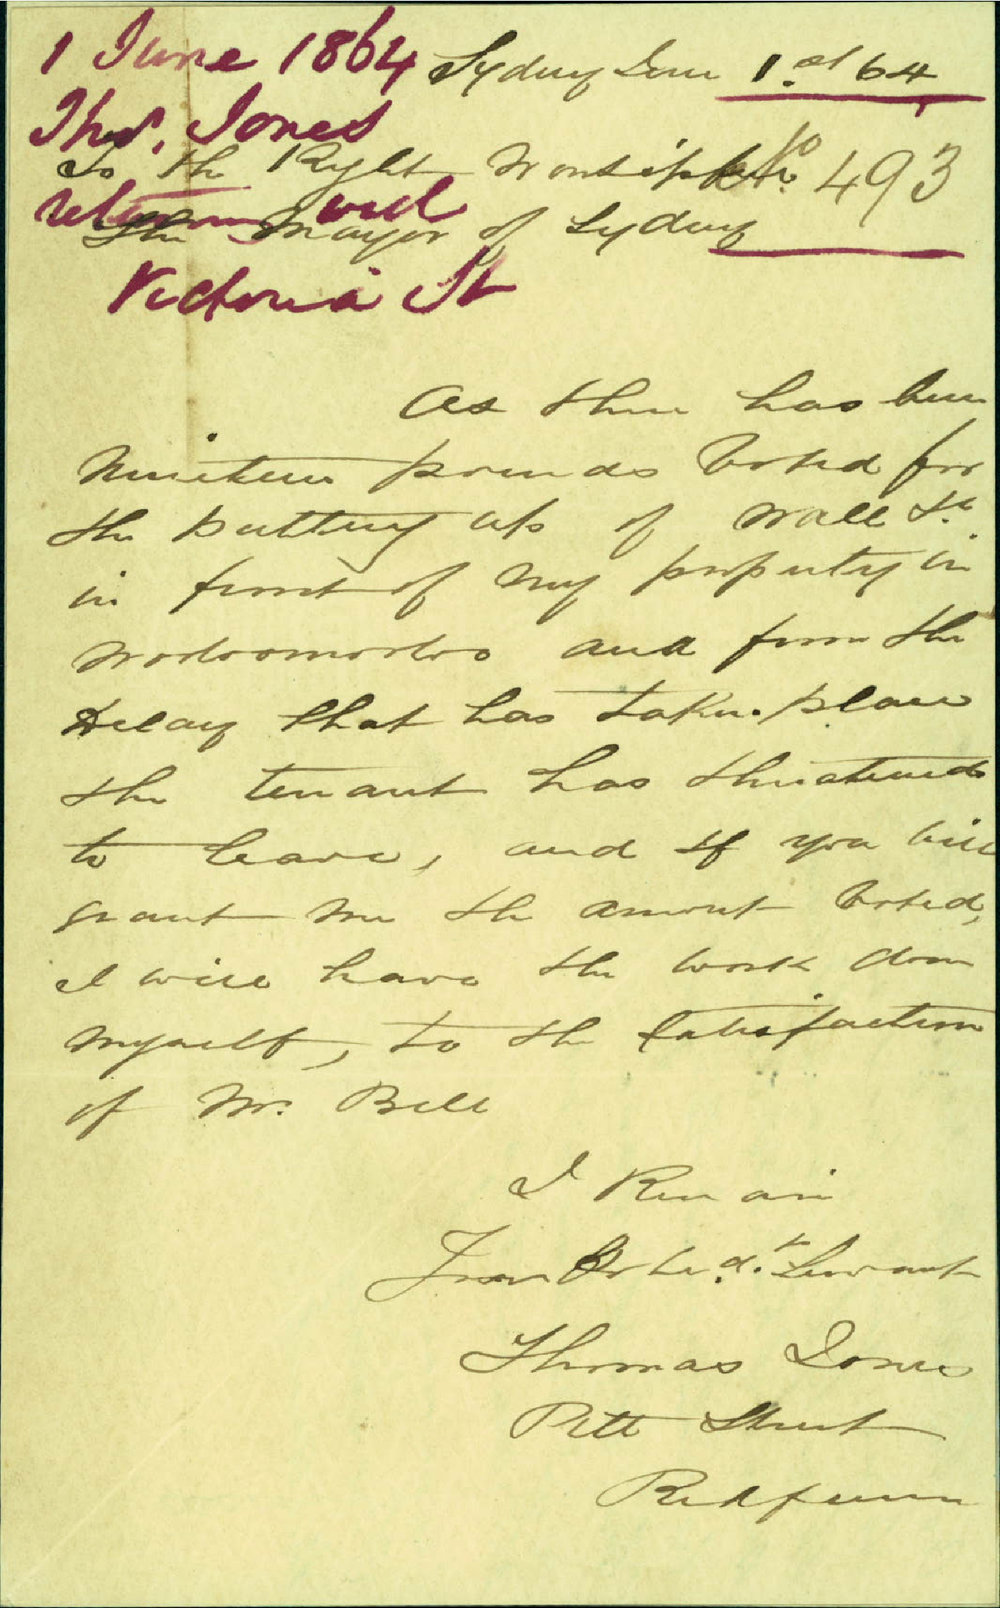 1 June 1864
Thos. Jones
retaining wall
Victoria St
Sydney June 1st 64
No 493
To the Right Worshipful
The Mayor of Sydney
As there has been
Nineteen pounds Voted for
the putting up of Wall &c
in front of my property in
Wooloomooloo and from the
Delay that has taken place
the tenant has threatened
to leave, and if you will
grant me the amount Voted,
I will have the work done
Myself, to the Satisfaction
of Mr. Bell
I Remain
Your Obed.t Servant
Thomas Jones
Pitt Street
Redfern